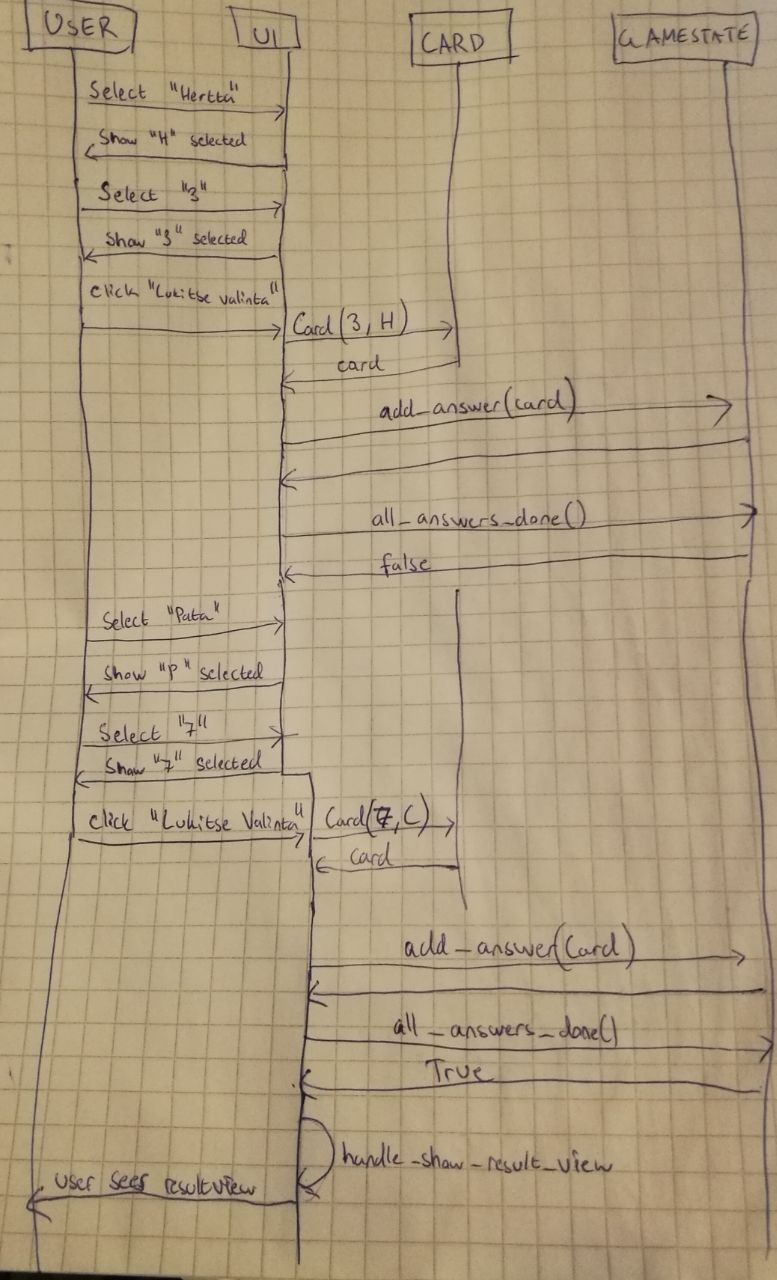 USER
UI
CARD
GAMESTATE
Select "Hertta"
Show "H" selected
Select "3"
Show "3" selected
click "Lukitse valinta"
Card(3, H)
card
add_answer(card)
all_answers_done()
false
Select "Pata"
Show "P" selected
Select "7"
Show "7" selected
click "Lukitse Valinta"
Card(7, C)
card
add_answer(Card)
all_answers_done()
True
handle_show_result_view
user sees resultview